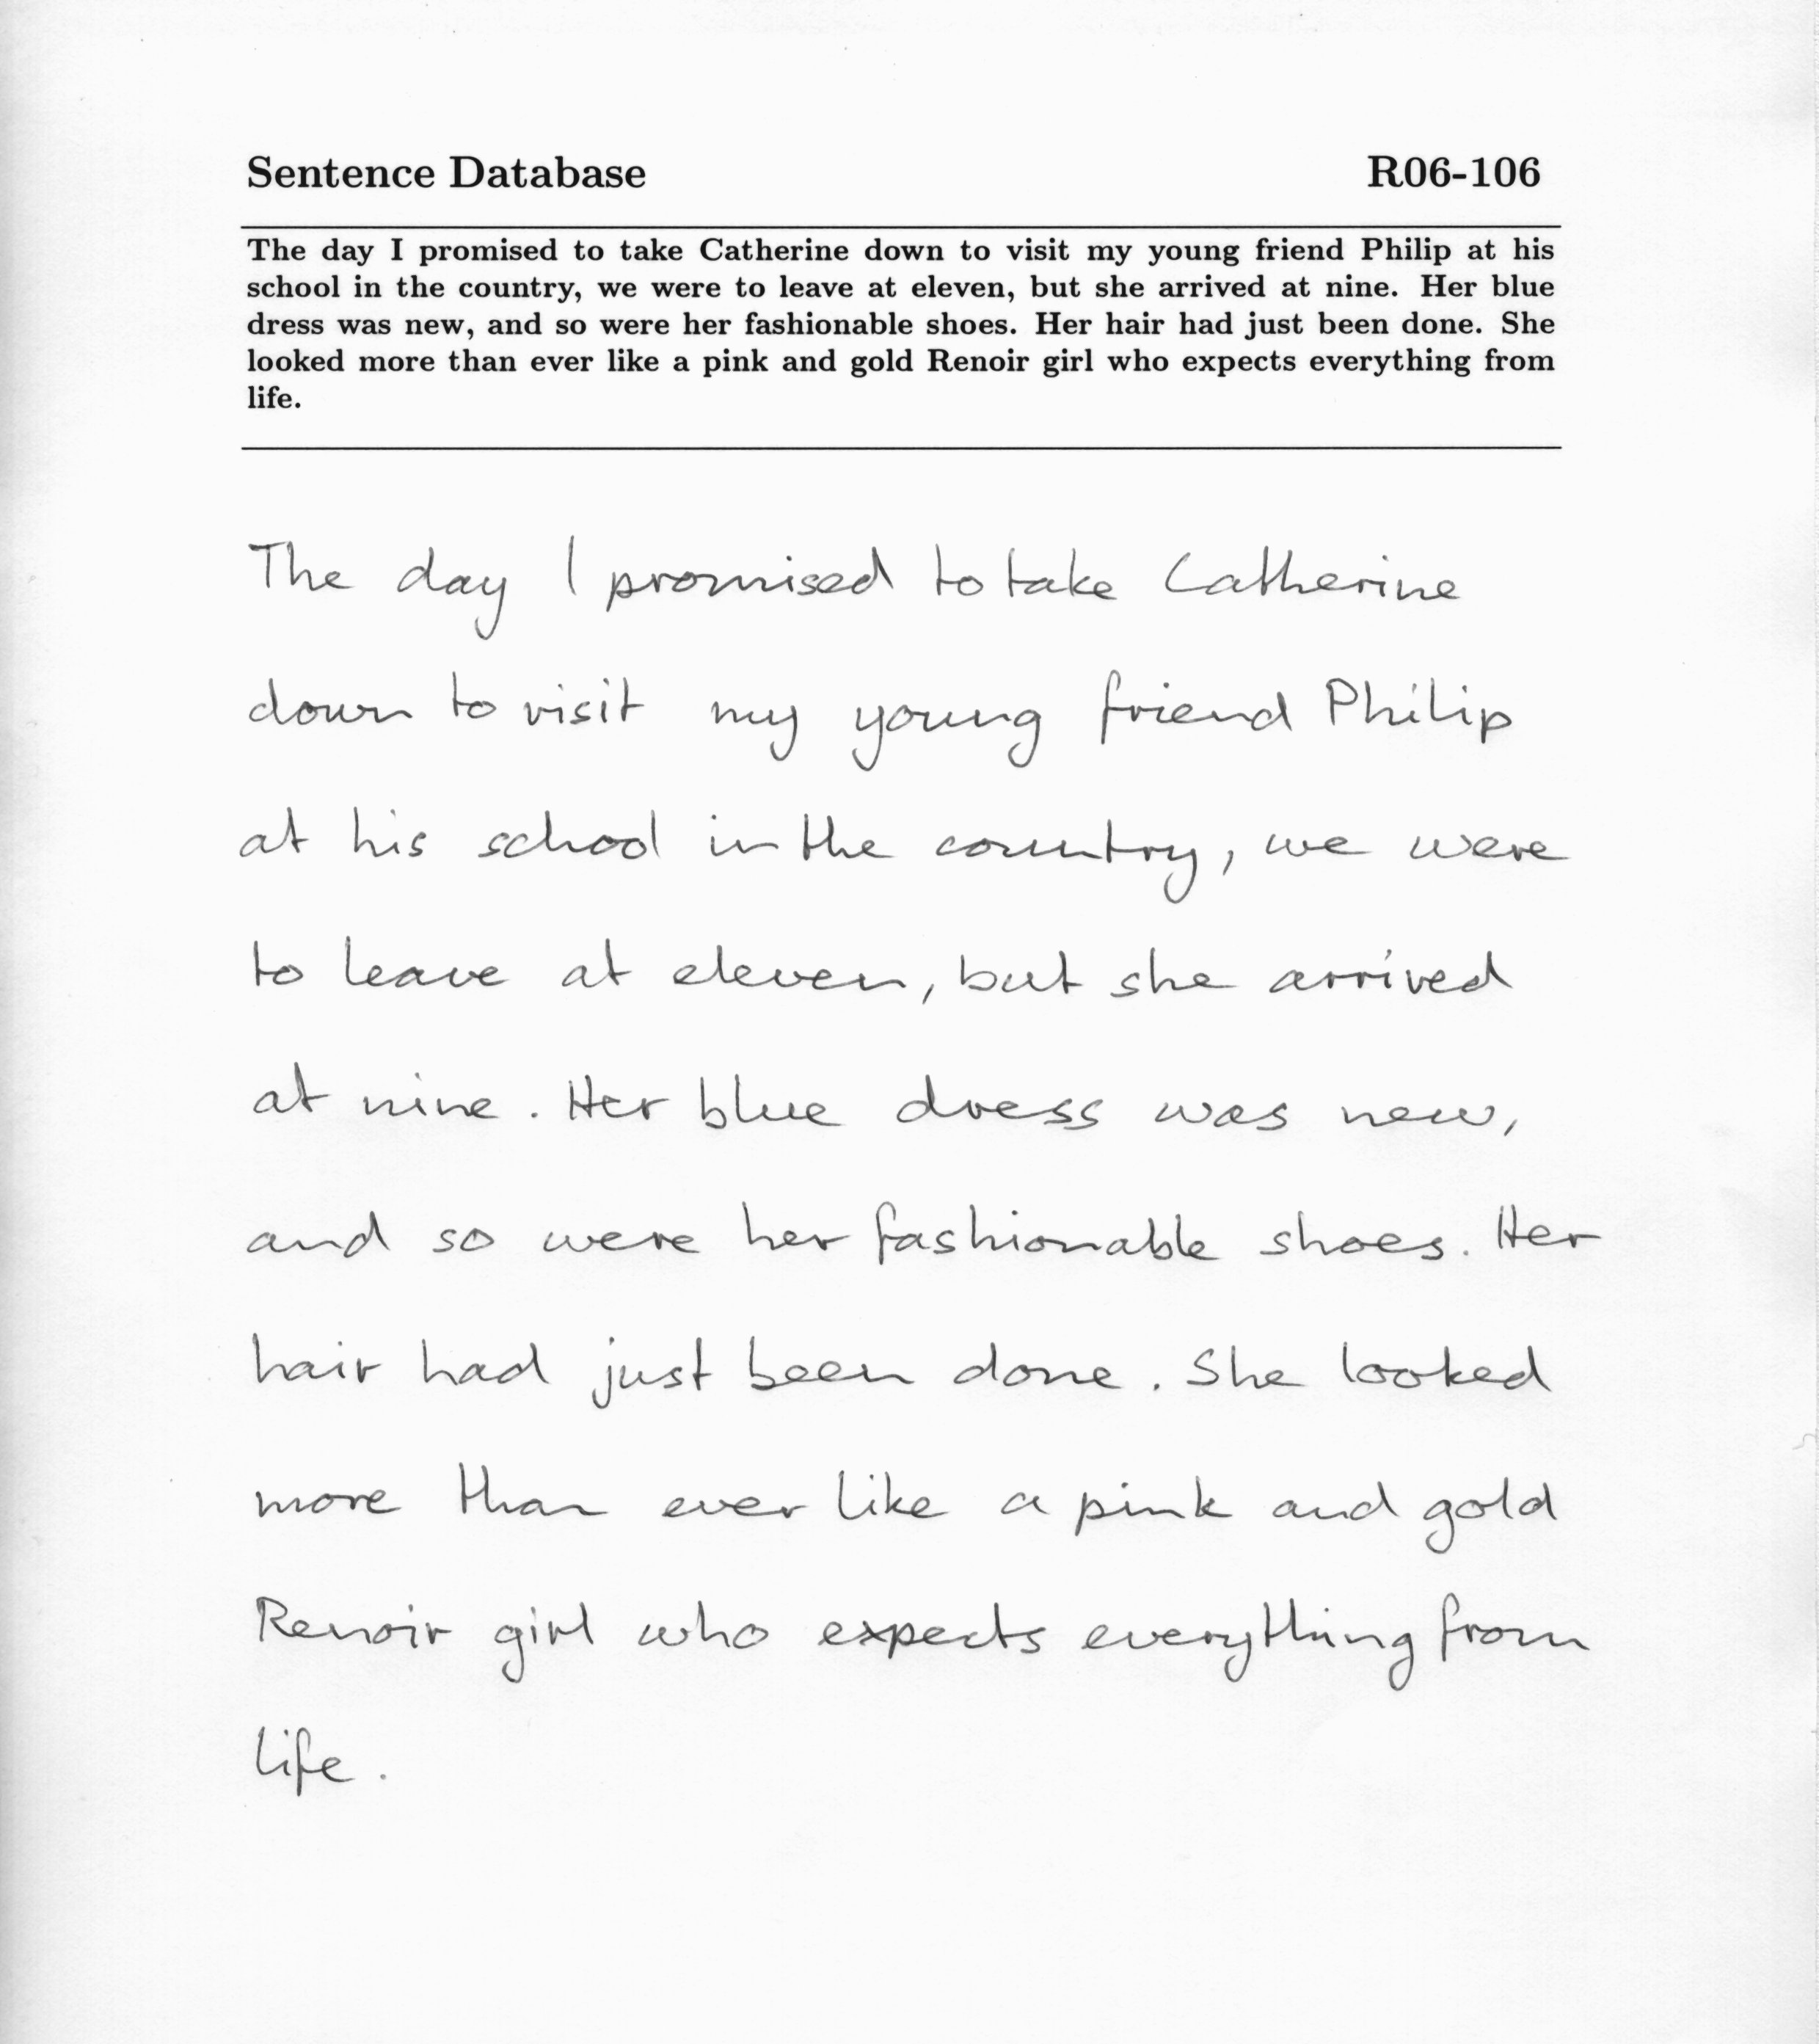 Sentence Database R06-106
The day I promised to take Catherine down to visit my young friend Philip at his
school in the country, we were to leave at eleven, but she arrived at nine. Her blue
dress was new, and so were her fashionable shoes. Her hair had just been done. She
looked more than ever like a pink and gold Renoir girl who expects everything from
life.
The day I promised to take Catherine
down to visit my young friend Philip
at his school in the country, we were
to leave at eleven, but she arrived
at nine. Her blue dress was new,
and so were her fashionable shoes. Her
hair had just been done. She looked
more than ever like a pink and gold
Renoir girl who expects everything from
life.